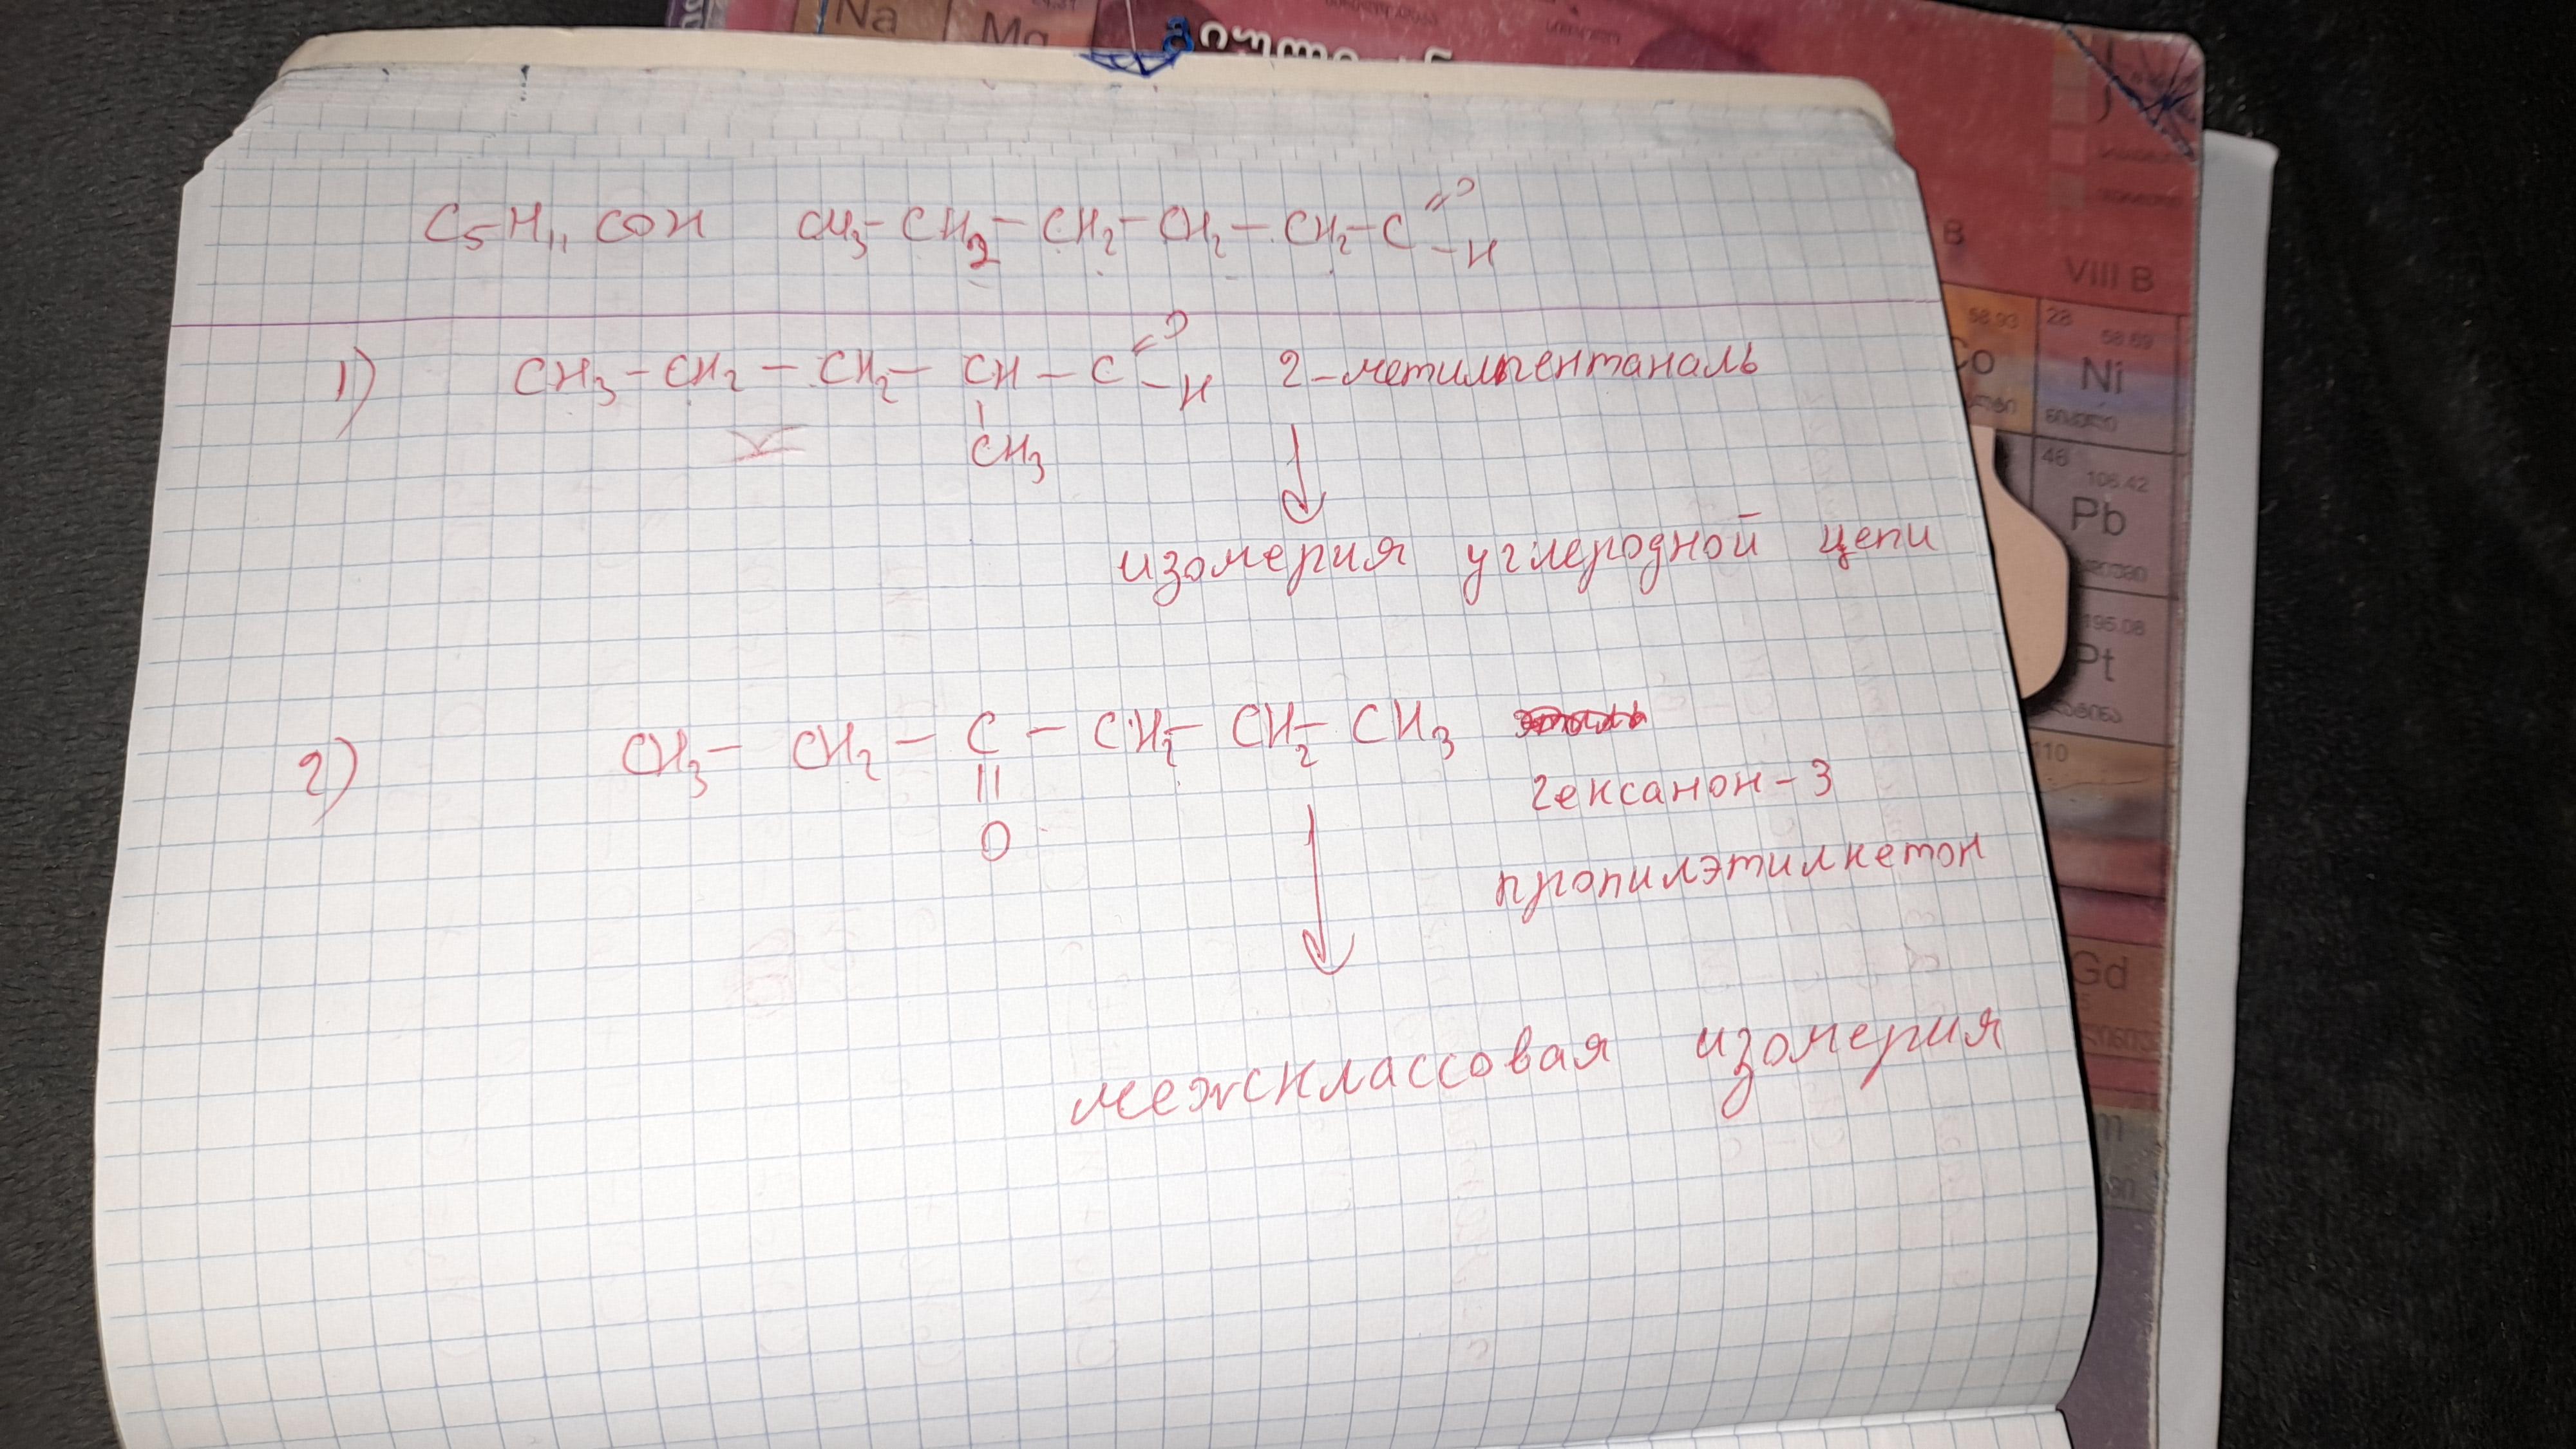 Na Mg
C5H11COH CH3-CH2-CH2-CH2-CH2-C=O
-H
1) CH3-CH2-CH2-CH-C=O 2-метилпентаналь
-H
CH3
изомерия углеродной цепи
2) CH3-CH2-C-CH2-CH2-CH3
O
гексанон-3
пропилэтилкетон
межклассовая изомерия
B
VIII B
58.93 28
58.69
Co Ni
46
106.42
Pb
195.08
Pt
110
Gd